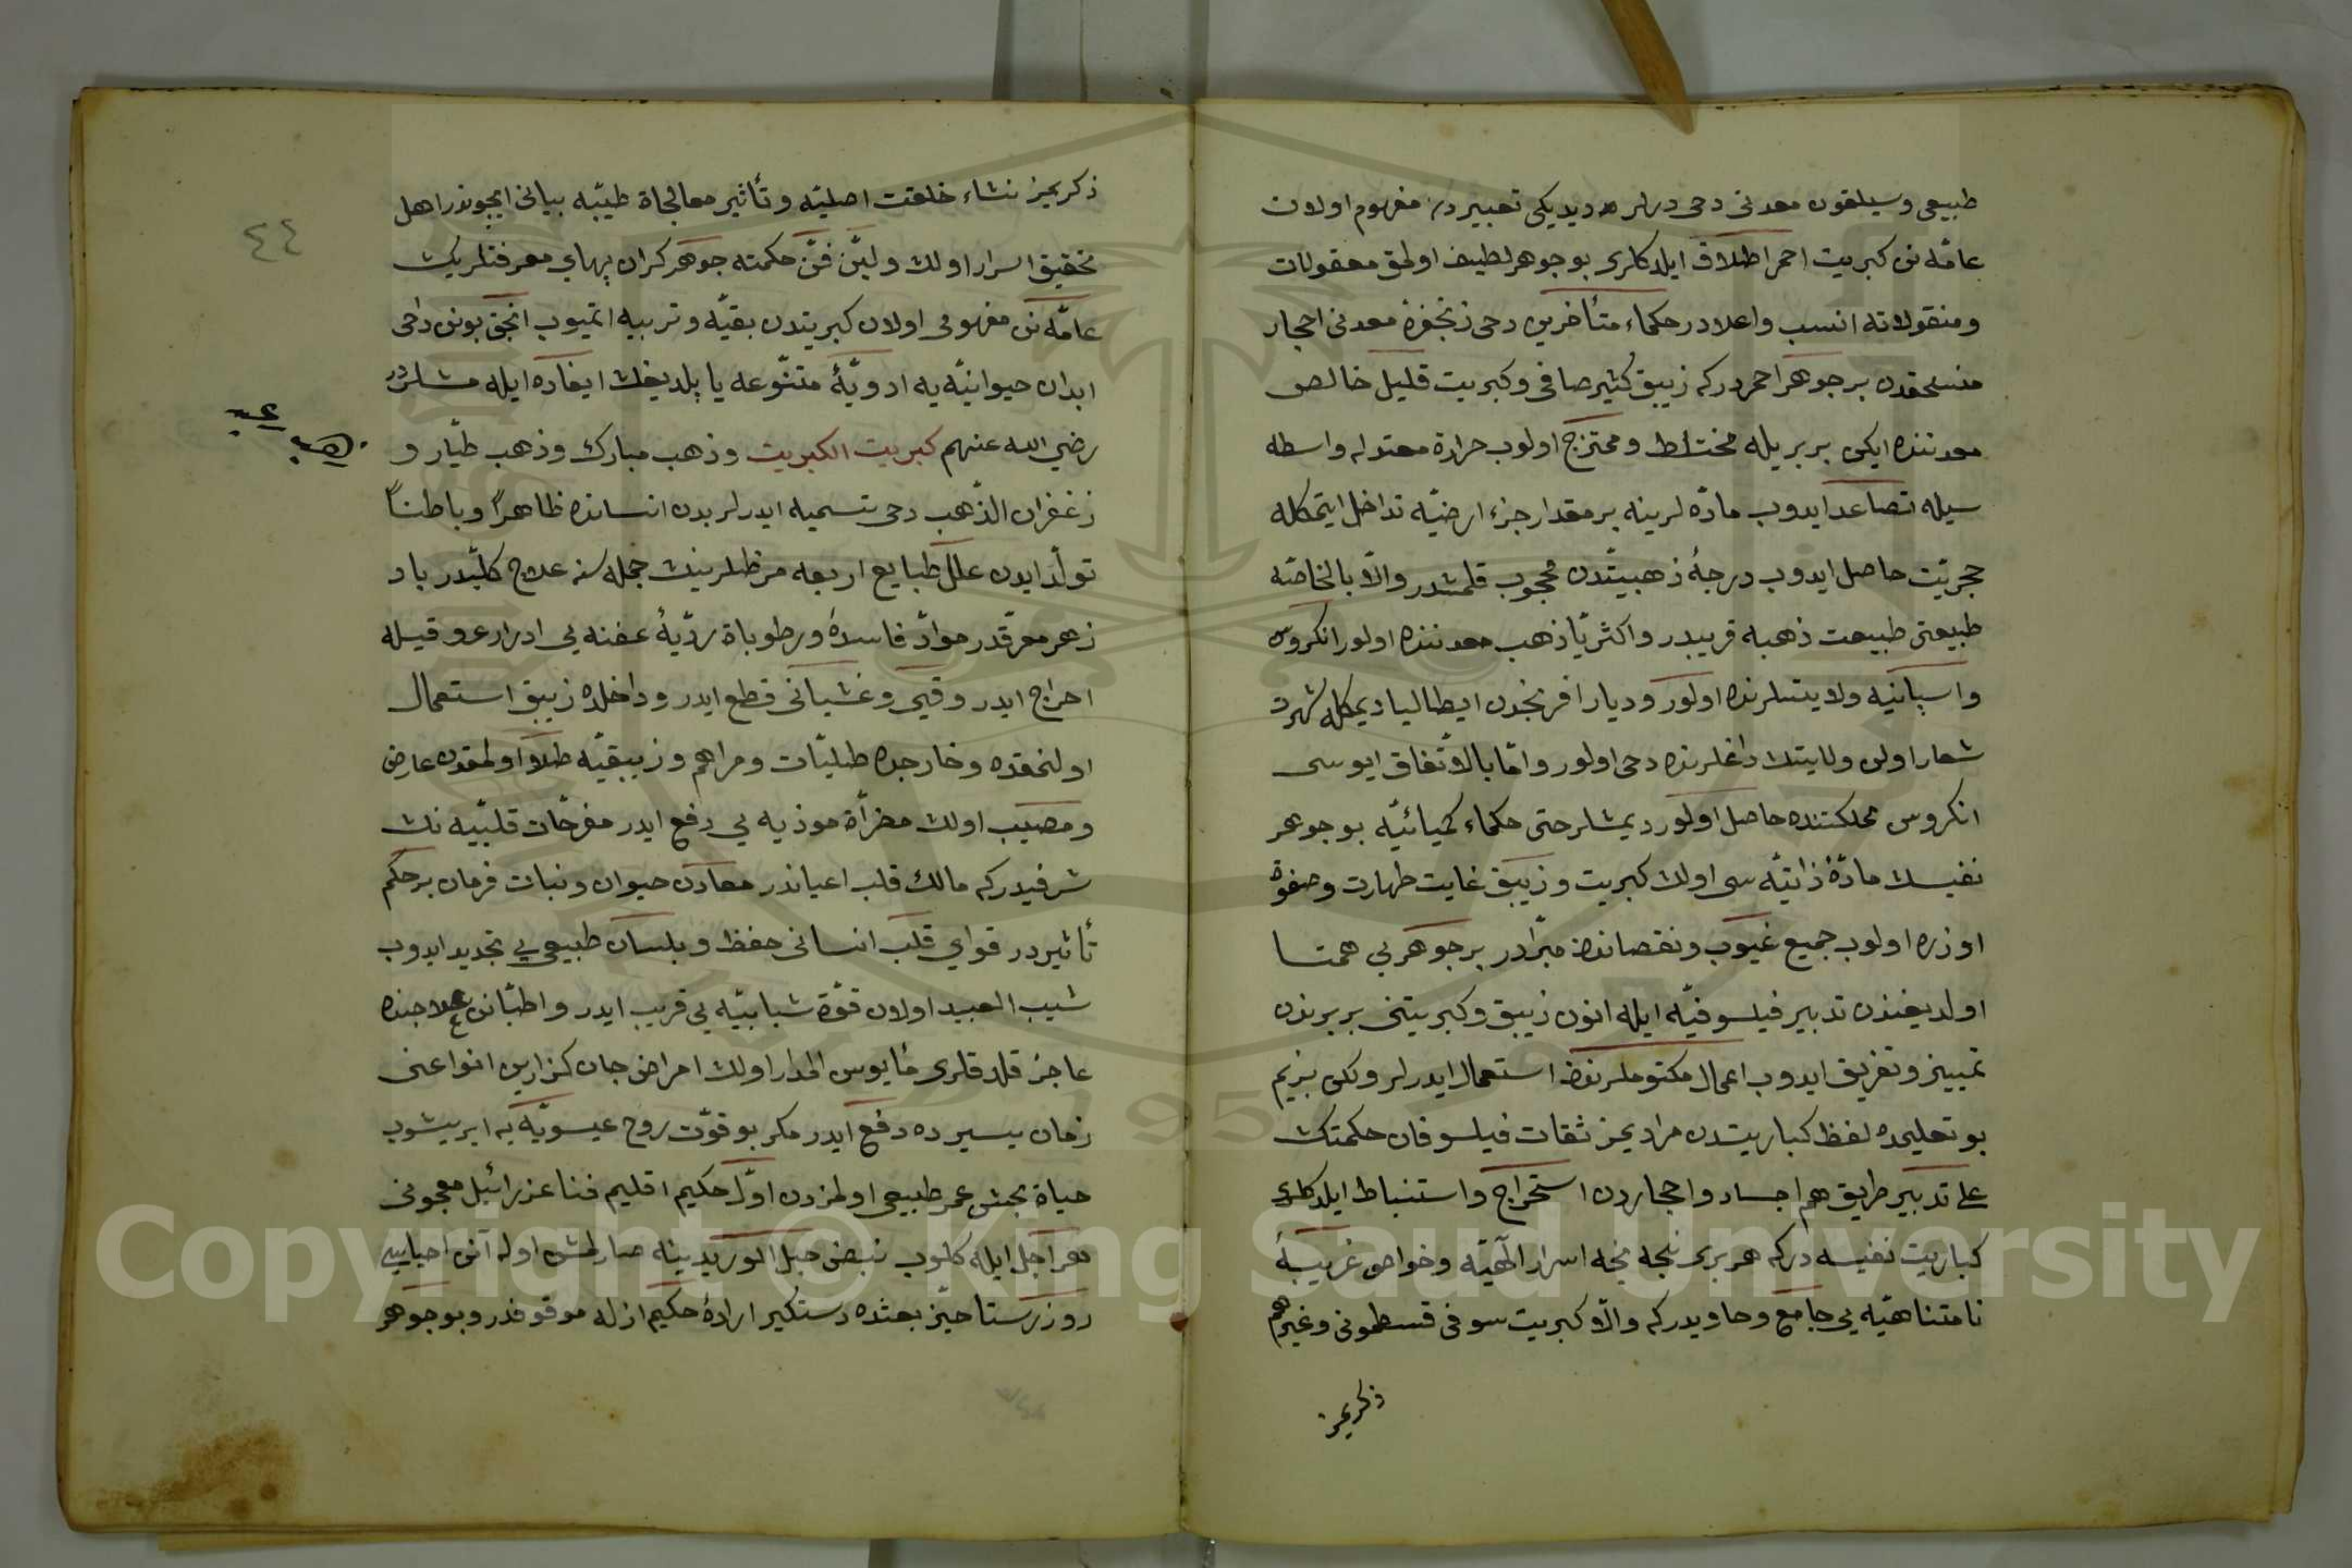 طبيعى وسيلقون معدنى دخى ديرلر ديديكى تعبيردن مفهوم اولان
عامّه نن كبريت احمر اطلاق ايلدكلرى بو جوهر لطيف اولمق معقولات
ومنقولاته انسب واعلادر حكماء متأخرين دخى زنجفره معدنى احجار
منسحقدن بر جوهر احمردركه زيبق كثير صافى وكبريت قليل خالص
معدننده ايكى بربريله مختلط وممتزج اولوب حرارة معتدله واسطه
سيله تصاعد ايدوب مادّه لرينه بر مقدار جزء ارضيّه تداخل ايتمكله
حجريّت حاصل ايدوب درجهٔ ذهبيّتدن محجوب قلمشدر والّا بالخاصّه
طبيعتى طبيعت ذهبه قريبدر واكثريّا ذهب معدننده اولور انكروس
واسپانيه ولايتلرنده اولور وديار افرنجدن ايطاليا ديمكله شهرت
شعار اولن ولايتك داغلرنده دخى اولور وامّا بالاتّفاق ايوسى
انكروس مملكتنده حاصل اولور ديمشلر حتى حكماء كميائيّه بو جوهر
نفيسك مادّهٔ ذاتيّه سى اولان كبريت وزيبق غايت طهارت وصفوة
اوزره اولوب جميع عيوب ونقصاندن مبرّادر بر جوهر بى همتا
اولديغندن تدبير فيلسوفيّه ايله انون زيبق وكبريتنى بربرندن
تمييز وتفريق ايدوب اعمال مكتومه لرنده استعمال ايدرلر ولكن بزيم
بو تعليمده لفظ كباريتدن مراديمز ثقات فيلسوفان حكمتك
على تدبير طريق هم اجساد واحجاردن استخراج واستنباط ايلدكلرى
كباريت نفيسه دركه هر برى نيجه نيجه اسرار الٓهيّه وخواص غريبهٔ
نامتناهيّه يى جامع وحاويدركه والّا كبريت سوفى قسطمونى وغيرهم
ذكريمز
ذكريمز نشاء خلقت اصليّه وتأثير معالجاة طيّبه بيانى ايچوندر اهل
تحقيق اسرار اولان وليّن فنّ حكمته جوهر كران بهاى معرفتلرينك
عامّه نن مفهومى اولان كبريتدن بقيّه وتربيه ايتميوب انجق بونى دخى
ابدان حيوانيّه يه ادويّهٔ متنوّعه ياپلديغك ايفاده ايله مشلردر
رضي الله عنهم كبريت الكبريت وذهب مبارك وذهب طيّار و
زعفران الذّهب دخى تسميه ايدرلر بدن انسانده ظاهراً وباطناً
تولّد ايدن علل طبايع اربعه مرضلرينك جمله سنه علاج كلّيدر باد
زهر معرّقدر موادّ فاسدهٔ ورطوباة رديّهٔ عفنه يى ادرار عروقيله
احراج ايدر وقيى وغشيانى قطع ايدر وداخلده زيبق استعمال
اولنمقده وخارجده طليّات ومراهم وزيبقيّه طلاو اولمقدن عارض
ومصيب اولان مضرّاة موذيه يى دفع ايدر مفرحّات قلبيّه نك
شرفيدركه مالك قلب اعياندر معادن حيوان ونبات فرمان برحكم
تأثيردر قواي قلب انسانى حفظ وبلسان طبيعى يى تجديد ايدوب
شيب العبيد اولان قوّة شبابيّه يى قريب ايدر واطبّانن علاجنده
عاجز قلدقلرى مأيوس المدار اولان امراض جان كزارين انواعنى
زمان يسيرده دفع ايدر مكر بو قوّت روح عيسويّه يه ايريشوب
حياة بخش عمر طبيعى اولمزدن اوّل حكيم اقليم فنا عزرائيل معجونى
زهر اجل ايله كلوب نبض حبل الوريدينه صارلمش اوله آنن احياسى
روز رستاحيز بعثده دستكير ارادهٔ حكيم ازله موقوفدر وبو جوهر
٤٤